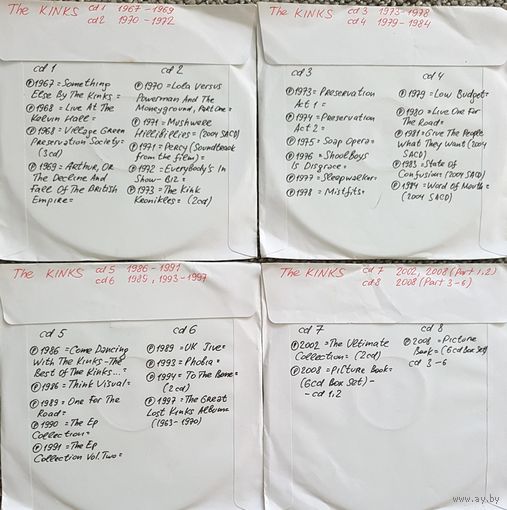 The KINKS cd 1 1967-1969
cd 2 1970-1972
cd 1
Ⓟ1967=Something
Else By The Kinks=
Ⓟ1968=Live At The
Kelvin Hall=
Ⓟ1968=Village Green
Preservation Society=
(3cd)
Ⓟ1969=Arthur, Or
The Decline And
Fall Of The British
Empire=
cd 2
Ⓟ1970=Lola Versus
Powerman And The
Moneyground, Part One=
Ⓟ1971=Mushwell
Hillibillies=(2004 SACD)
Ⓟ1971=Percy (Soundtrack
from the film)=
Ⓟ1972=Everybody's In
Show-Biz=
Ⓟ1973=The Kink
Kronikles=(2cd)
The KINKS cd 3 1973-1978
cd 4 1979-1984
cd 3
Ⓟ1973=Preservation
Act 1=
Ⓟ1974=Preservation
Act 2=
Ⓟ1975=Soap Opera=
Ⓟ1976=Shool Boys
Is Disgrace=
Ⓟ1977=Sleepwalker=
Ⓟ1978=Misfits=
cd 4
Ⓟ1979=Low Budget=
Ⓟ1980=Live One For
The Road=
Ⓟ1981=Give The People
What They Want (2004
SACD)
Ⓟ1983=State Of
Confusion=(2004 SACD)
Ⓟ1984=Word Of Mouth=
(2004 SACD)
The KINKS cd 5 1986-1991
cd 6 1989, 1993-1997
cd 5
Ⓟ1986=Come Dancing
With The Kinks-The
Best Of The Kinks...=
Ⓟ1986=Think Visual=
Ⓟ1989=One For The
Road=
Ⓟ1990=The Ep
Collection=
Ⓟ1991=The Ep
Collection Vol. Two=
cd 6
Ⓟ1989=UK Jive=
Ⓟ1993=Phobia=
Ⓟ1994=To The Bone=
(2cd)
Ⓟ1997=The Great
Lost Kinks Album=
(1963-1970)
The KINKS cd 7 2002, 2008(Part 1,2)
cd 8 2008(Part 3-6)
cd 7
Ⓟ2002=The Ultimate
Collection=(2cd)
Ⓟ2008=Picture Book=
(6cd Box Set)-
-cd 1,2
cd 8
Ⓟ2008=Picture
Book=(6cd Box Set)
cd 3-6
www.ay.by